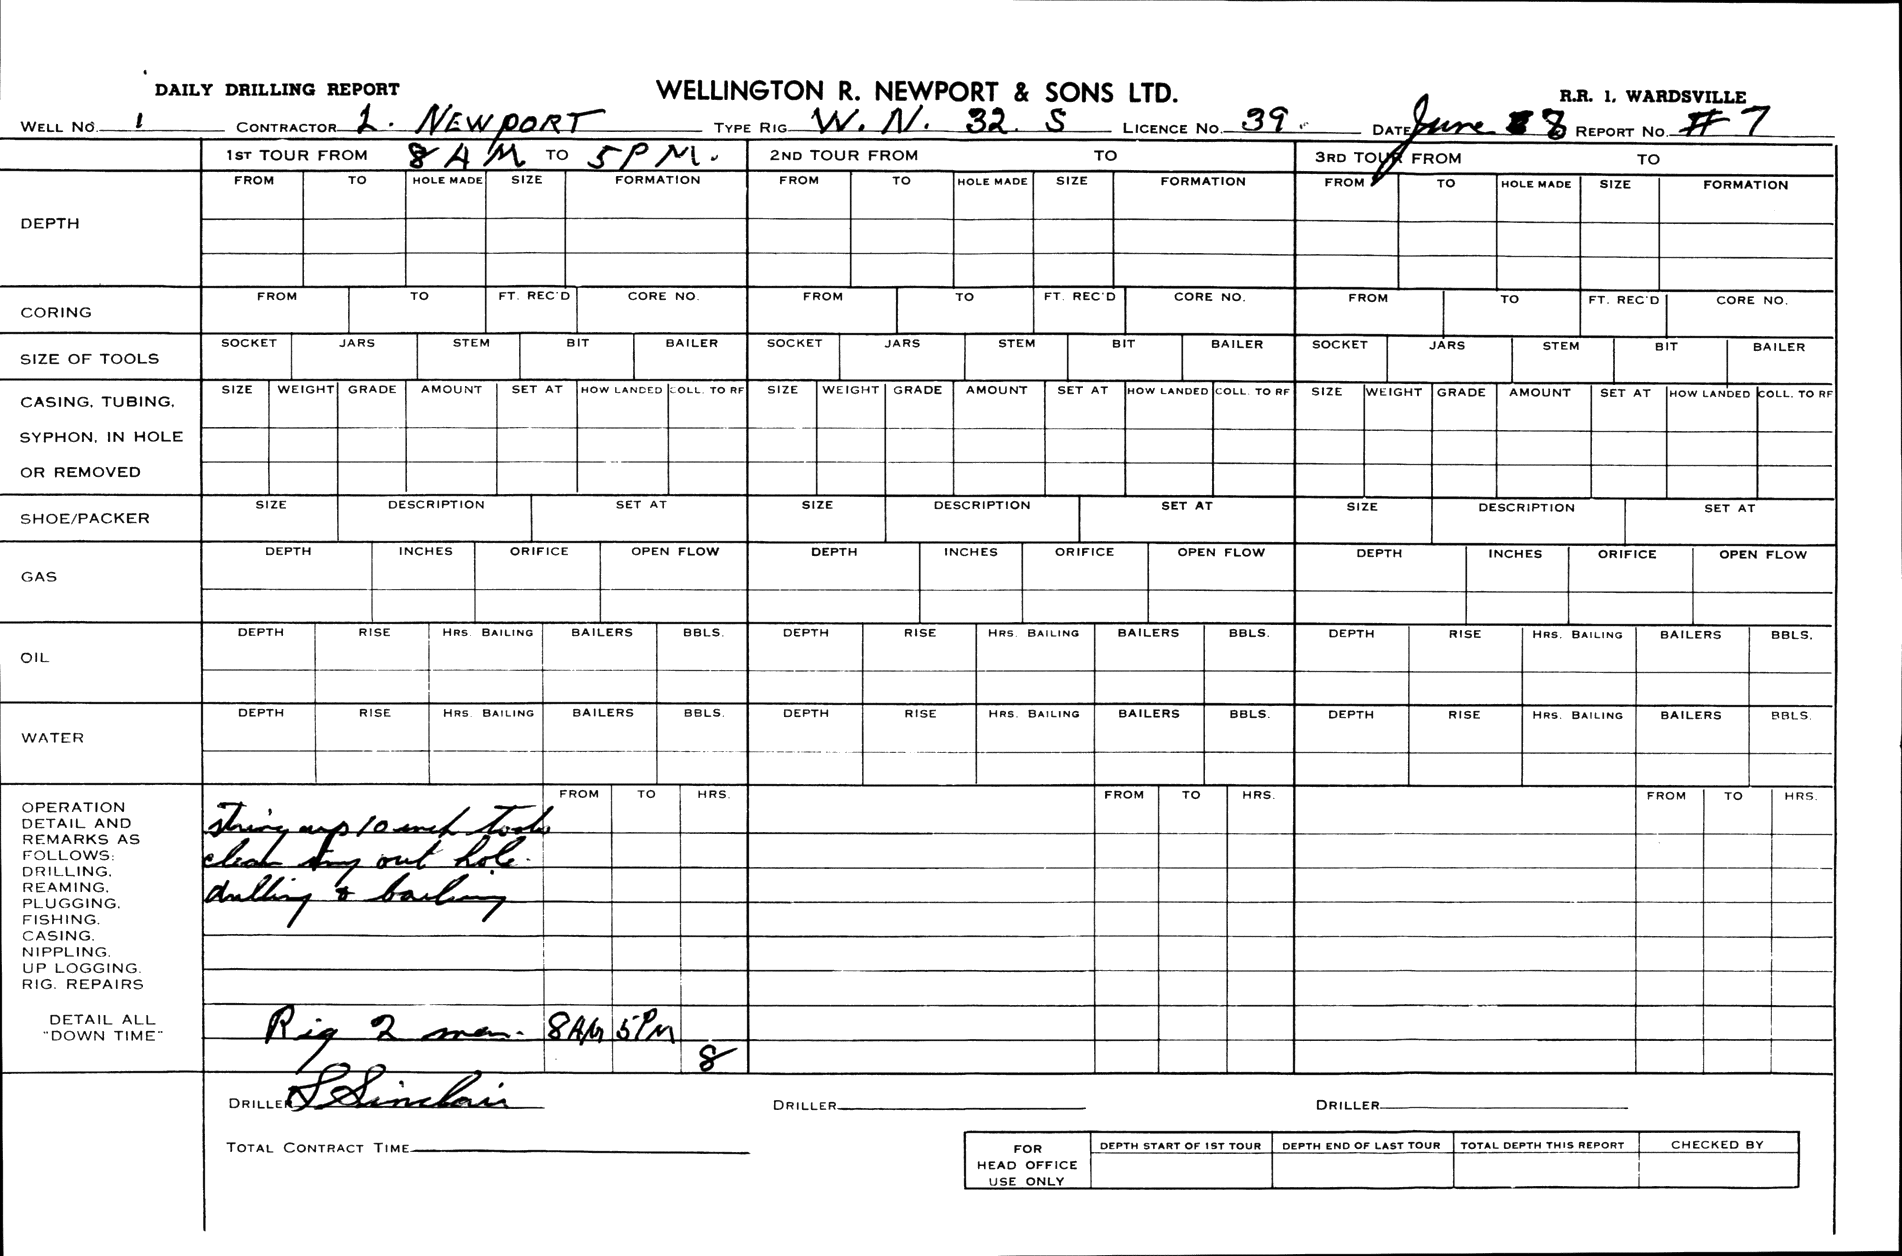 DAILY DRILLING REPORT WELLINGTON R. NEWPORT & SONS LTD. R.R. 1, WARDSVILLE
WELL NO. 1 CONTRACTOR L. NEWPORT TYPE RIG W. N. 32 S LICENCE NO. 39 DATE June 8 REPORT NO. # 7
1ST TOUR FROM 8 AM TO 5 PM. 2ND TOUR FROM TO 3RD TOUR FROM TO
DEPTH
FROM TO HOLE MADE SIZE FORMATION FROM TO HOLE MADE SIZE FORMATION FROM TO HOLE MADE SIZE FORMATION
CORING
FROM TO FT. REC'D CORE NO. FROM TO FT. REC'D CORE NO. FROM TO FT. REC'D CORE NO.
SIZE OF TOOLS
SOCKET JARS STEM BIT BAILER SOCKET JARS STEM BIT BAILER SOCKET JARS STEM BIT BAILER
CASING, TUBING,
SYPHON, IN HOLE
OR REMOVED
SIZE WEIGHT GRADE AMOUNT SET AT HOW LANDED COLL. TO RF SIZE WEIGHT GRADE AMOUNT SET AT HOW LANDED COLL. TO RF SIZE WEIGHT GRADE AMOUNT SET AT HOW LANDED COLL. TO RF
SHOE/PACKER
SIZE DESCRIPTION SET AT SIZE DESCRIPTION SET AT SIZE DESCRIPTION SET AT
GAS
DEPTH INCHES ORIFICE OPEN FLOW DEPTH INCHES ORIFICE OPEN FLOW DEPTH INCHES ORIFICE OPEN FLOW
OIL
DEPTH RISE HRS. BAILING BAILERS BBLS. DEPTH RISE HRS. BAILING BAILERS BBLS. DEPTH RISE HRS. BAILING BAILERS BBLS.
WATER
DEPTH RISE HRS. BAILING BAILERS BBLS. DEPTH RISE HRS. BAILING BAILERS BBLS. DEPTH RISE HRS. BAILING BAILERS BBLS.
OPERATION
DETAIL AND
REMARKS AS
FOLLOWS:
DRILLING,
REAMING,
PLUGGING,
FISHING.
CASING.
NIPPLING.
UP LOGGING.
RIG. REPAIRS
DETAIL ALL
"DOWN TIME"
FROM TO HRS. FROM TO HRS. FROM TO HRS.
string up 10 inch tools
clean out hole.
drilling & bailing
Rig 2 men. 8AM 5PM
8
DRILLER S Sinclair DRILLER DRILLER
TOTAL CONTRACT TIME
FOR
HEAD OFFICE
USE ONLY
DEPTH START OF 1ST TOUR DEPTH END OF LAST TOUR TOTAL DEPTH THIS REPORT CHECKED BY